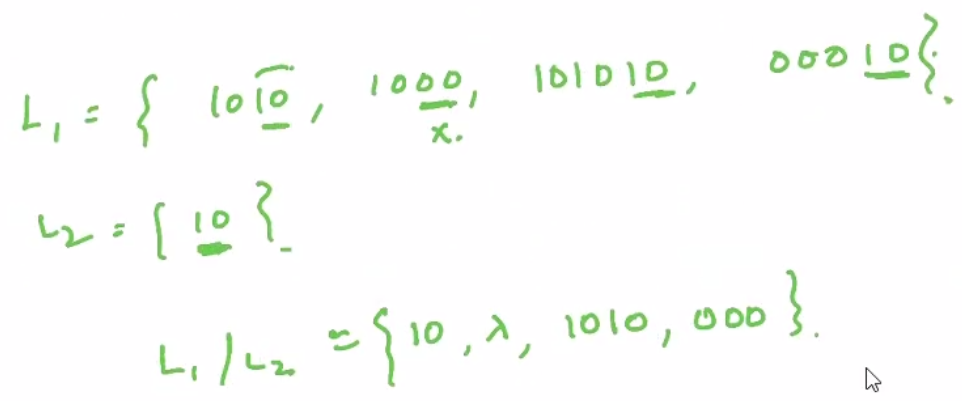 L₁ = { 1010, 1000, 101010, 00010}.
x.
L₂ = { 10 }
L₁/L₂ = {10, λ, 1010, 000}.